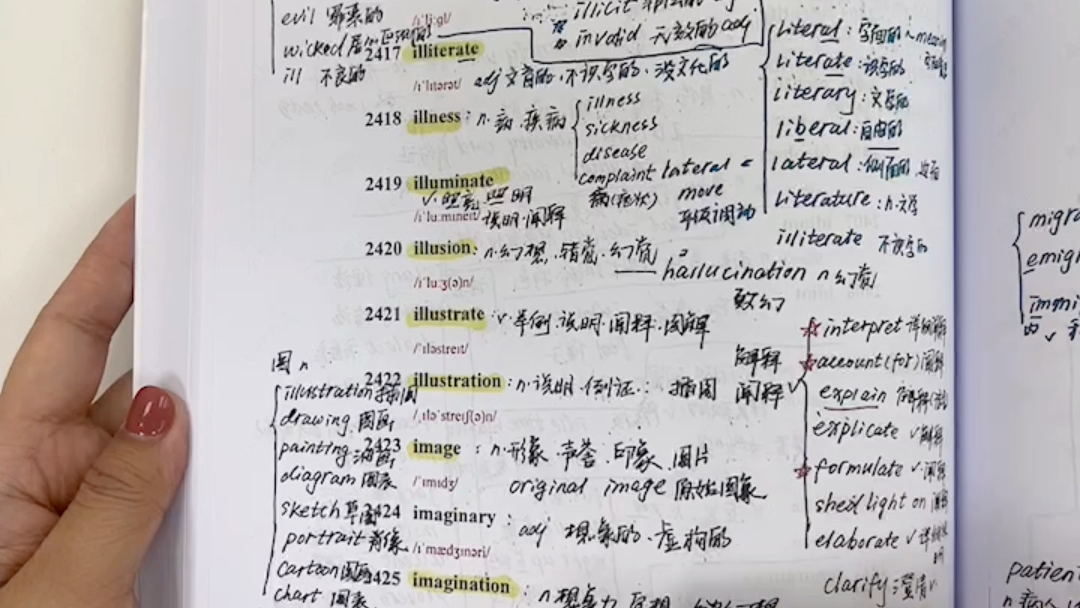 evil 罪恶的
wicked
ill 不良的
/ɪˈliːgl/
illicit
invalid 无效的 adj
2417 illiterate
/ɪˈlɪtərət/ adj 文盲的、不识字的、没文化的
2418 illness: n. 病、疾病
illness
sickness
disease
complaint 病(症状)
2419 illuminate
v. 照亮 照明
/ɪˈluːmɪneɪt/ 说明 阐释
lateral =
move
平级调动
literal: 字面的 ~
literate: 识字的
literary: 文学的
liberal: 自由的
lateral: 侧面的
literature: n. 文学
illiterate 不识字的
2420 illusion: n. 幻想、错觉、幻觉
/ɪˈluːʒ(ə)n/
hallucination n 幻觉
致幻
2421 illustrate: v. 举例、说明、阐释、图解
/ˈɪləstreɪt/
2422 illustration: n. 说明、例证.: 插图
/ˌɪləˈstreɪʃ(ə)n/
2423 image: n. 形象、声誉、印象、图片
/ˈɪmɪdʒ/ original image 原始图象
2424 imaginary: adj 想象的、虚构的
/ɪˈmædʒɪnəri/
2425 imagination: n. 想象力
图 n
illustration 插图
drawing 图画
painting 油画
diagram 图表
sketch 草图
portrait 肖像
cartoon
chart 图表
解释
阐释 v
☆interpret
☆account (for) 阐释
explain
explicate v 解释
☆formulate v. 阐释
shed light on
elaborate v
clarify: 澄清 v
migra
emigr
immi
patien